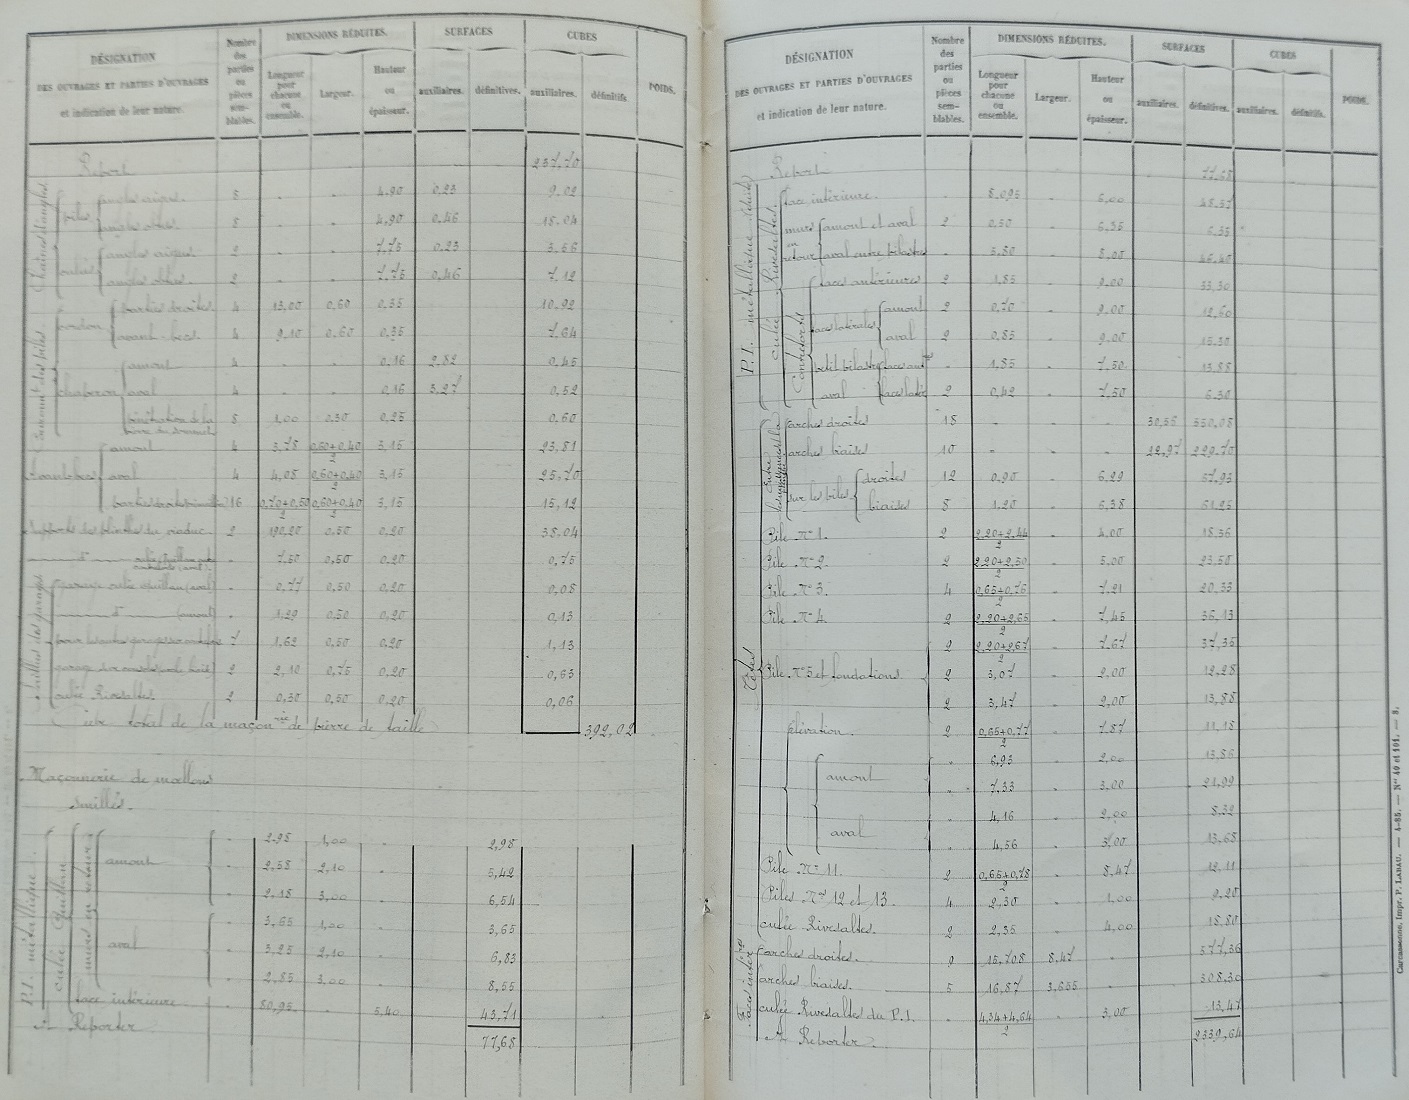 DÉSIGNATION
DES OUVRAGES ET PARTIES D'OUVRAGES
et indication de leur nature.
Nombre des parties ou pièces semblables.
DIMENSIONS RÉDUITES.
Longueur pour chacune ou ensemble.
Largeur.
Hauteur ou épaisseur.
SURFACES
auxiliaires.
définitives.
CUBES
auxiliaires.
définitifs
POIDS.
Report 257,70
piles angles aigus. 8 " " 4.90 0,23 9.02
angles obtus. 8 " " 4,90 0,46 18.04
culées angles aigus 2 " " 7.75 0,23 3.56
angles obtus. 2 " " 7.75 0,46 7.12
cordon parties droites. 4 13,00 0,60 0,35 10.92
avant-becs. 4 9,10 0.60 0.35 7.64
chaperon amont 4 " " 0.16 2,82 0,45
aval 4 " " 0,16 3,27 0,52
8 1,00 0,30 0,25 0,60
amont 4 3,78 0,60+0,40/2 3,15 23,81
aval 4 4,08 0,60+0,40/2 3,15 25,70
16 0,70+0,50/2 0,60+0,40/2 3,15 15,12
Supports des plinthes du viaduc. 2 190,20 0,50 0,20 38.04
" 7.50 0,50 0,20 0,75
garage culée Quillan (aval) " 0,77 0,50 0,20 0,08
d° (amont) " 1,29 0,50 0,20 0,13
7 1,62 0,50 0,20 1,13
2 2,10 0,75 0,20 0,63
culée Rivesaltes. 2 0,30 0,50 0,20 0,06
Cube total de la maçonrie de pierre de taille 392,02
Maçonnerie de moellons
smillés.
P.I. métallique.
culée Quillan
murs en retour.
amont " 2.98 1,00 2,98
" 2,58 2,10 5,42
" 2.18 3,00 6,54
aval " 3,65 1,00 3,65
" 3,25 2,10 6,83
" 2,85 3,00 8,55
face intérieure " 80,95 " 5,40 43,71
A Reporter 77,68
DÉSIGNATION
DES OUVRAGES ET PARTIES D'OUVRAGES
et indication de leur nature.
Nombre des parties ou pièces semblables.
DIMENSIONS RÉDUITES.
Longueur pour chacune ou ensemble.
Largeur.
Hauteur ou épaisseur.
SURFACES
auxiliaires.
définitives.
CUBES
auxiliaires.
définitifs.
POIDS.
Report 77,68
P.I. métallique
culée Rivesaltes.
face intérieure. " 8.095 " 6,00 48.57
murs en retour amont et aval 2 0,50 " 6.35 6.35
aval entre pilastres " 5,80 " 8.00 46.40
Contreforts
faces antérieures 2 1,85 " 9.00 33,30
faces latérales amont 2 0,70 " 9.00 12,60
aval 2 0,85 " 9.00 15.30
petit pilastre aval " 1,85 " 7,50 13,88
2 0,42 " 7,50 6.30
arches droites 18 " " " 30,56 550.08
arches biaises 10 " " " 22,97 229.70
sur les piles droites 12 0.90 " 6,29 67.93
biaises 8 1,20 " 6,38 61,25
Pile n° 1. 2 2,20+2,44/2 " 4.00 18.56
Pile n° 2. 2 2,20+2,50/2 " 5.00 23,50
Pile n° 3. 4 0,65+0,76/2 " 7,21 20.33
Pile n° 4. 2 2,20+2,65/2 " 7,45 36,13
2 2,20+2,67/2 " 7.67 37,35
Têtes
Pile n° 5 et fondations 2 3,07 " 2.00 12,28
2 3,47 " 2,00 13,88
élévation. 2 0,65+0,77/2 " 7.87 11,18
amont " 6,93 " 2,00 13,86
" 7.33 " 3,00 21,99
aval " 4,16 " 2,00 8.32
" 4,56 " 3,00 13.68
Pile n° 11. 2 0,65+0,78/2 " 8.47 12,11
Piles nos 12 et 13. 4 2,30 " 1,00 9.20
culée Rivesaltes. 2 2,35 " 4,00 18.80
arches droites. 9 15,708 8.47 " 577,36
arches biaises. 5 16,87 3,655 " 308,30
culée Rivesaltes du P.I. " 4,34+4,64/2 " 3,00 13,47
A Reporter 2339,64
Carcassonne, Impr. P. LABAU. — 4-85. — Nos 49 et 101. — 8.